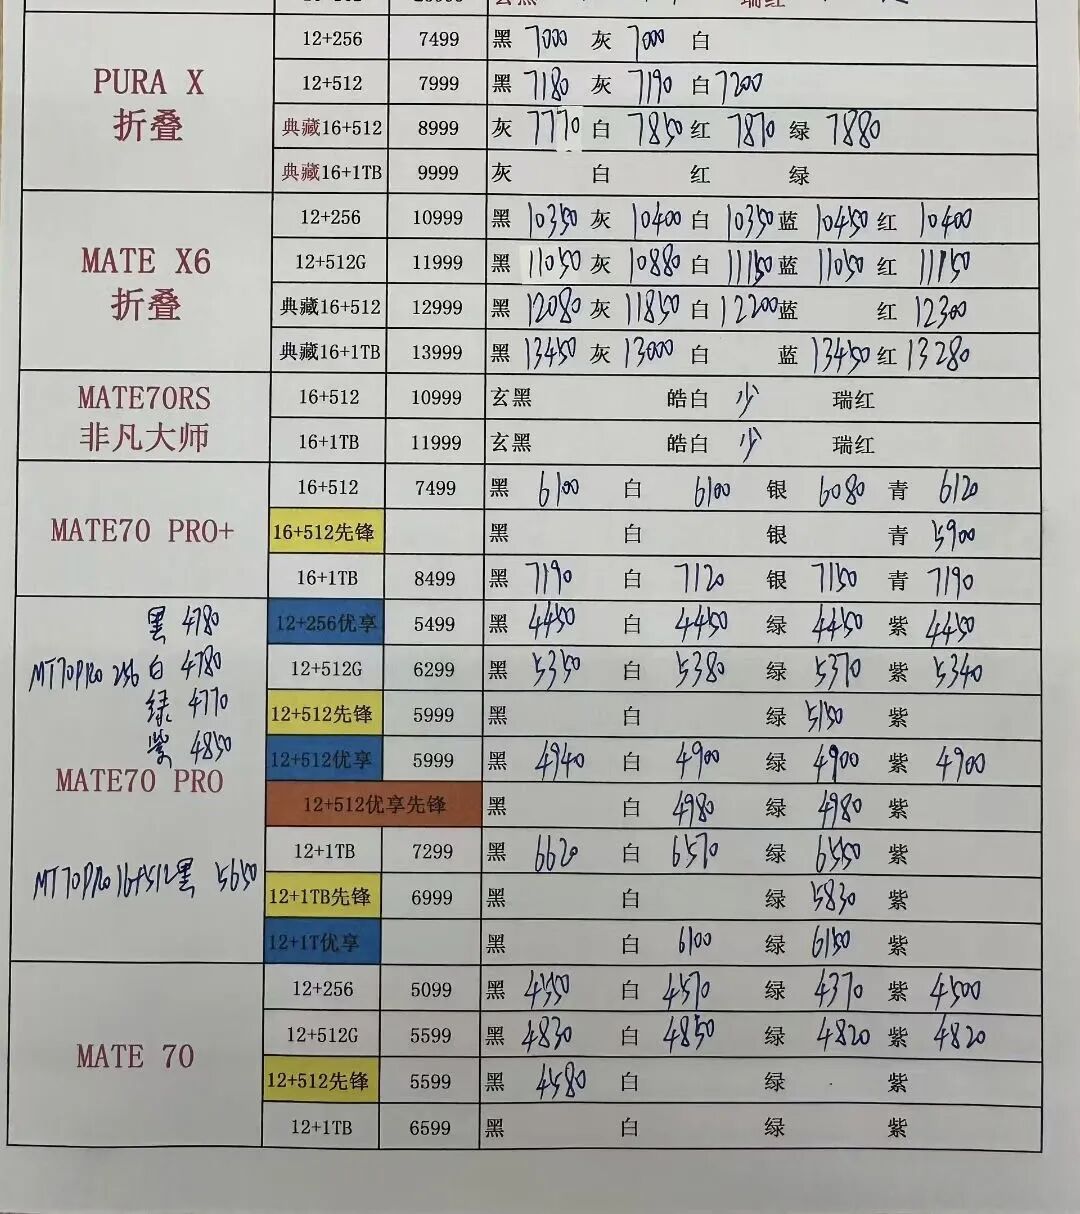 12+256 7499 黑 7000 灰 7000 白
PURA X 12+512 7999 黑 7180 灰 7190 白 7200
折叠 典藏16+512 8999 灰 7770 白 7850 红 7870 绿 7880
典藏16+1TB 9999 灰 白 红 绿
12+256 10999 黑 10350 灰 10400 白 10350 蓝 10450 红 10400
MATE X6 12+512G 11999 黑 11050 灰 10880 白 11150 蓝 11050 红 11150
折叠 典藏16+512 12999 黑 12080 灰 11850 白 12200 蓝 红 12300
典藏16+1TB 13999 黑 13450 灰 13000 白 蓝 13450 红 13280
MATE70RS 16+512 10999 玄黑 皓白 少 瑞红
非凡大师 16+1TB 11999 玄黑 皓白 少 瑞红
16+512 7499 黑 6100 白 6100 银 6080 青 6120
MATE70 PRO+ 16+512先锋 黑 白 银 青 5900
16+1TB 8499 黑 7190 白 7120 银 7150 青 7190
黑 4780 12+256优享 5499 黑 4450 白 4450 绿 4450 紫 4450
MT70PRO 256 白 4780 12+512G 6299 黑 5350 白 5380 绿 5370 紫 5340
绿 4770 12+512先锋 5999 黑 白 绿 5150 紫
紫 4850 12+512优享 5999 黑 4940 白 4900 绿 4900 紫 4900
MATE70 PRO 12+512优享先锋 黑 白 4980 绿 4980 紫
12+1TB 7299 黑 6620 白 6570 绿 6550 紫
MT70PRO 16+512黑 5650 12+1TB先锋 6999 黑 白 绿 5830 紫
12+1T优享 黑 白 6100 绿 6150 紫
12+256 5099 黑 4550 白 4570 绿 4370 紫 4500
12+512G 5599 黑 4830 白 4850 绿 4820 紫 4820
MATE 70 12+512先锋 5599 黑 4580 白 绿 紫
12+1TB 6599 黑 白 绿 紫